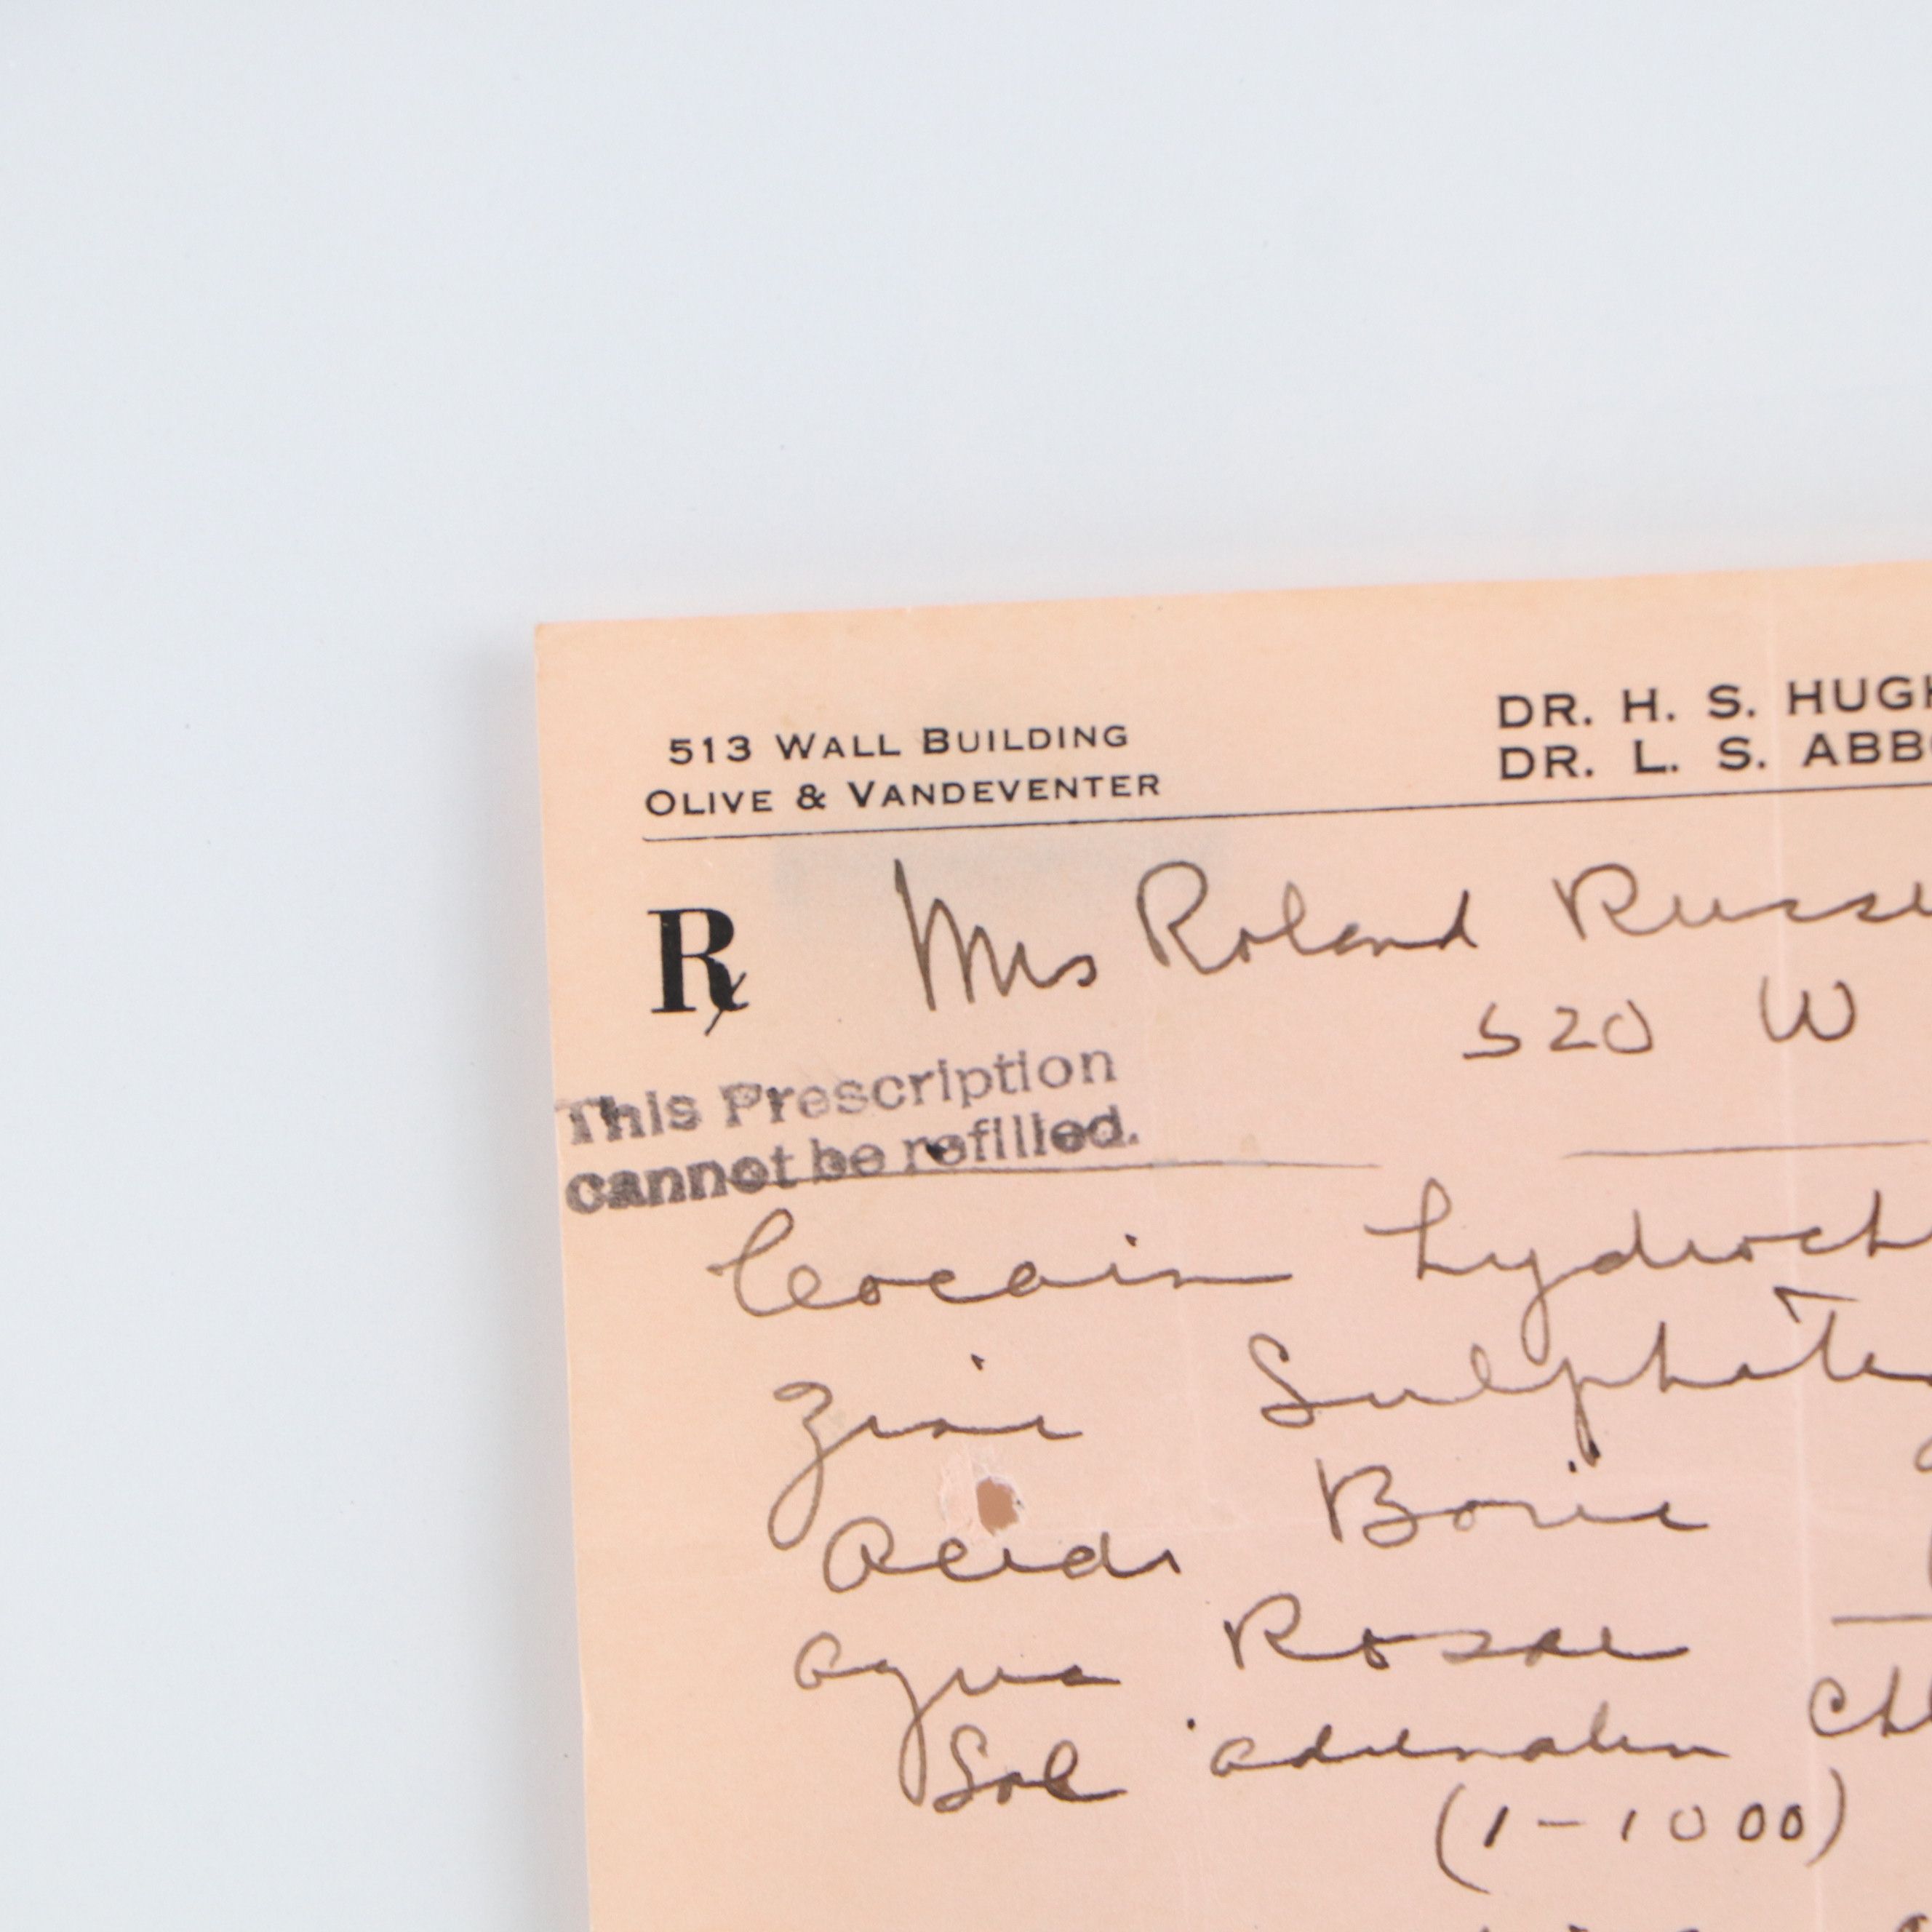 513 WALL BUILDING
OLIVE & VANDEVENTER
DR. H. S. HUGH
DR. L. S. ABBO
Rx Mrs Roland Russe
520 W
This Prescription
cannot be refilled.
Cocain hydroch
Zinc Sulphate
Acid Boric
Aqua Rosae
Sol adrenalin chl
(1-1000)